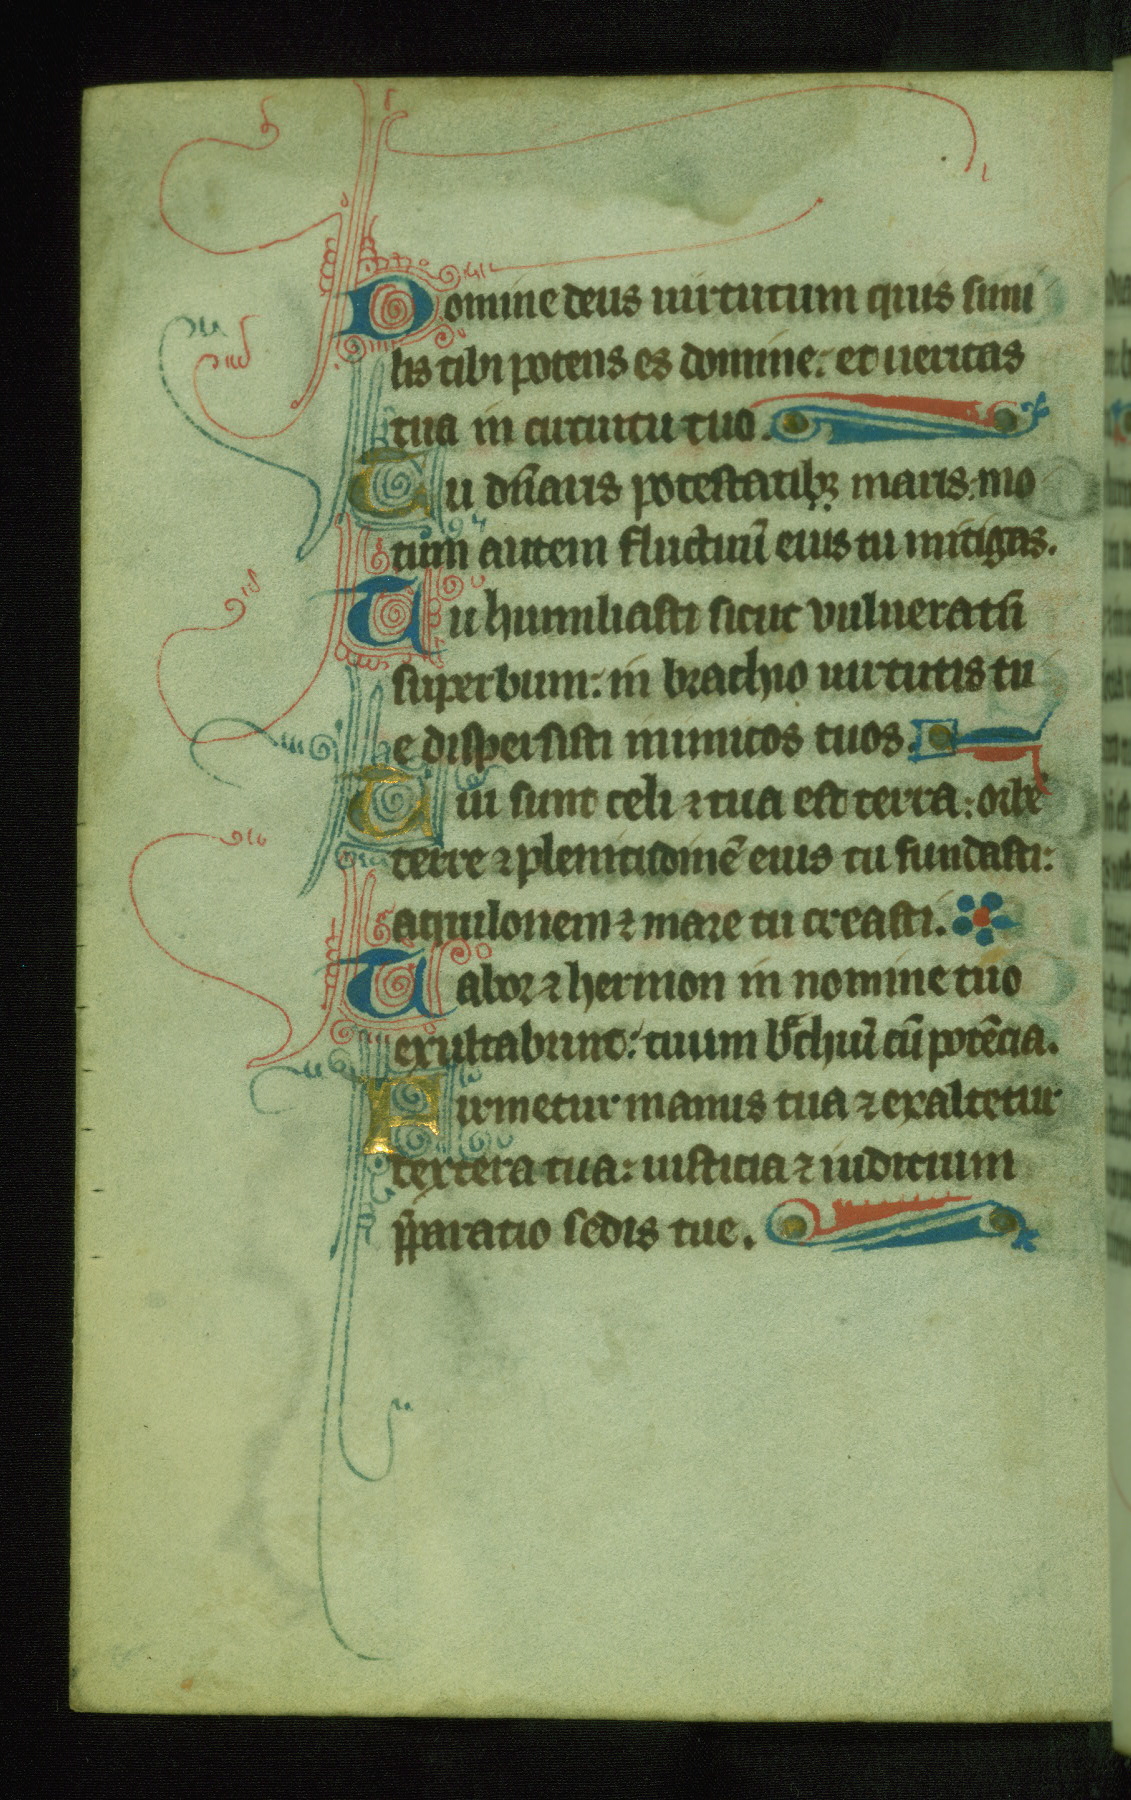 Domine deus uirtutum quis simi
lis tibi potens es domine: et ueritas
tua in circuitu tuo.
Tu dñaris potestatibꝫ maris: mo
tum autem fluctuū eius tu mitigas.
Tu humiliasti sicut vulneratū
superbum: in brachio uirtutis tu
e dispersisti inimicos tuos.
Tui sunt celi ⁊ tua est terra: orbē
terre ⁊ plenitudinē eius tu fundasti:
aquilonem ⁊ mare tu creasti.
Tabor ⁊ hermon in nomine tuo
exultabunt: tuum br̄chiū cū potēcia.
Firmetur manus tua ⁊ exaltetur
dextera tua: iusticia ⁊ iudicium
p̄paratio sedis tue.